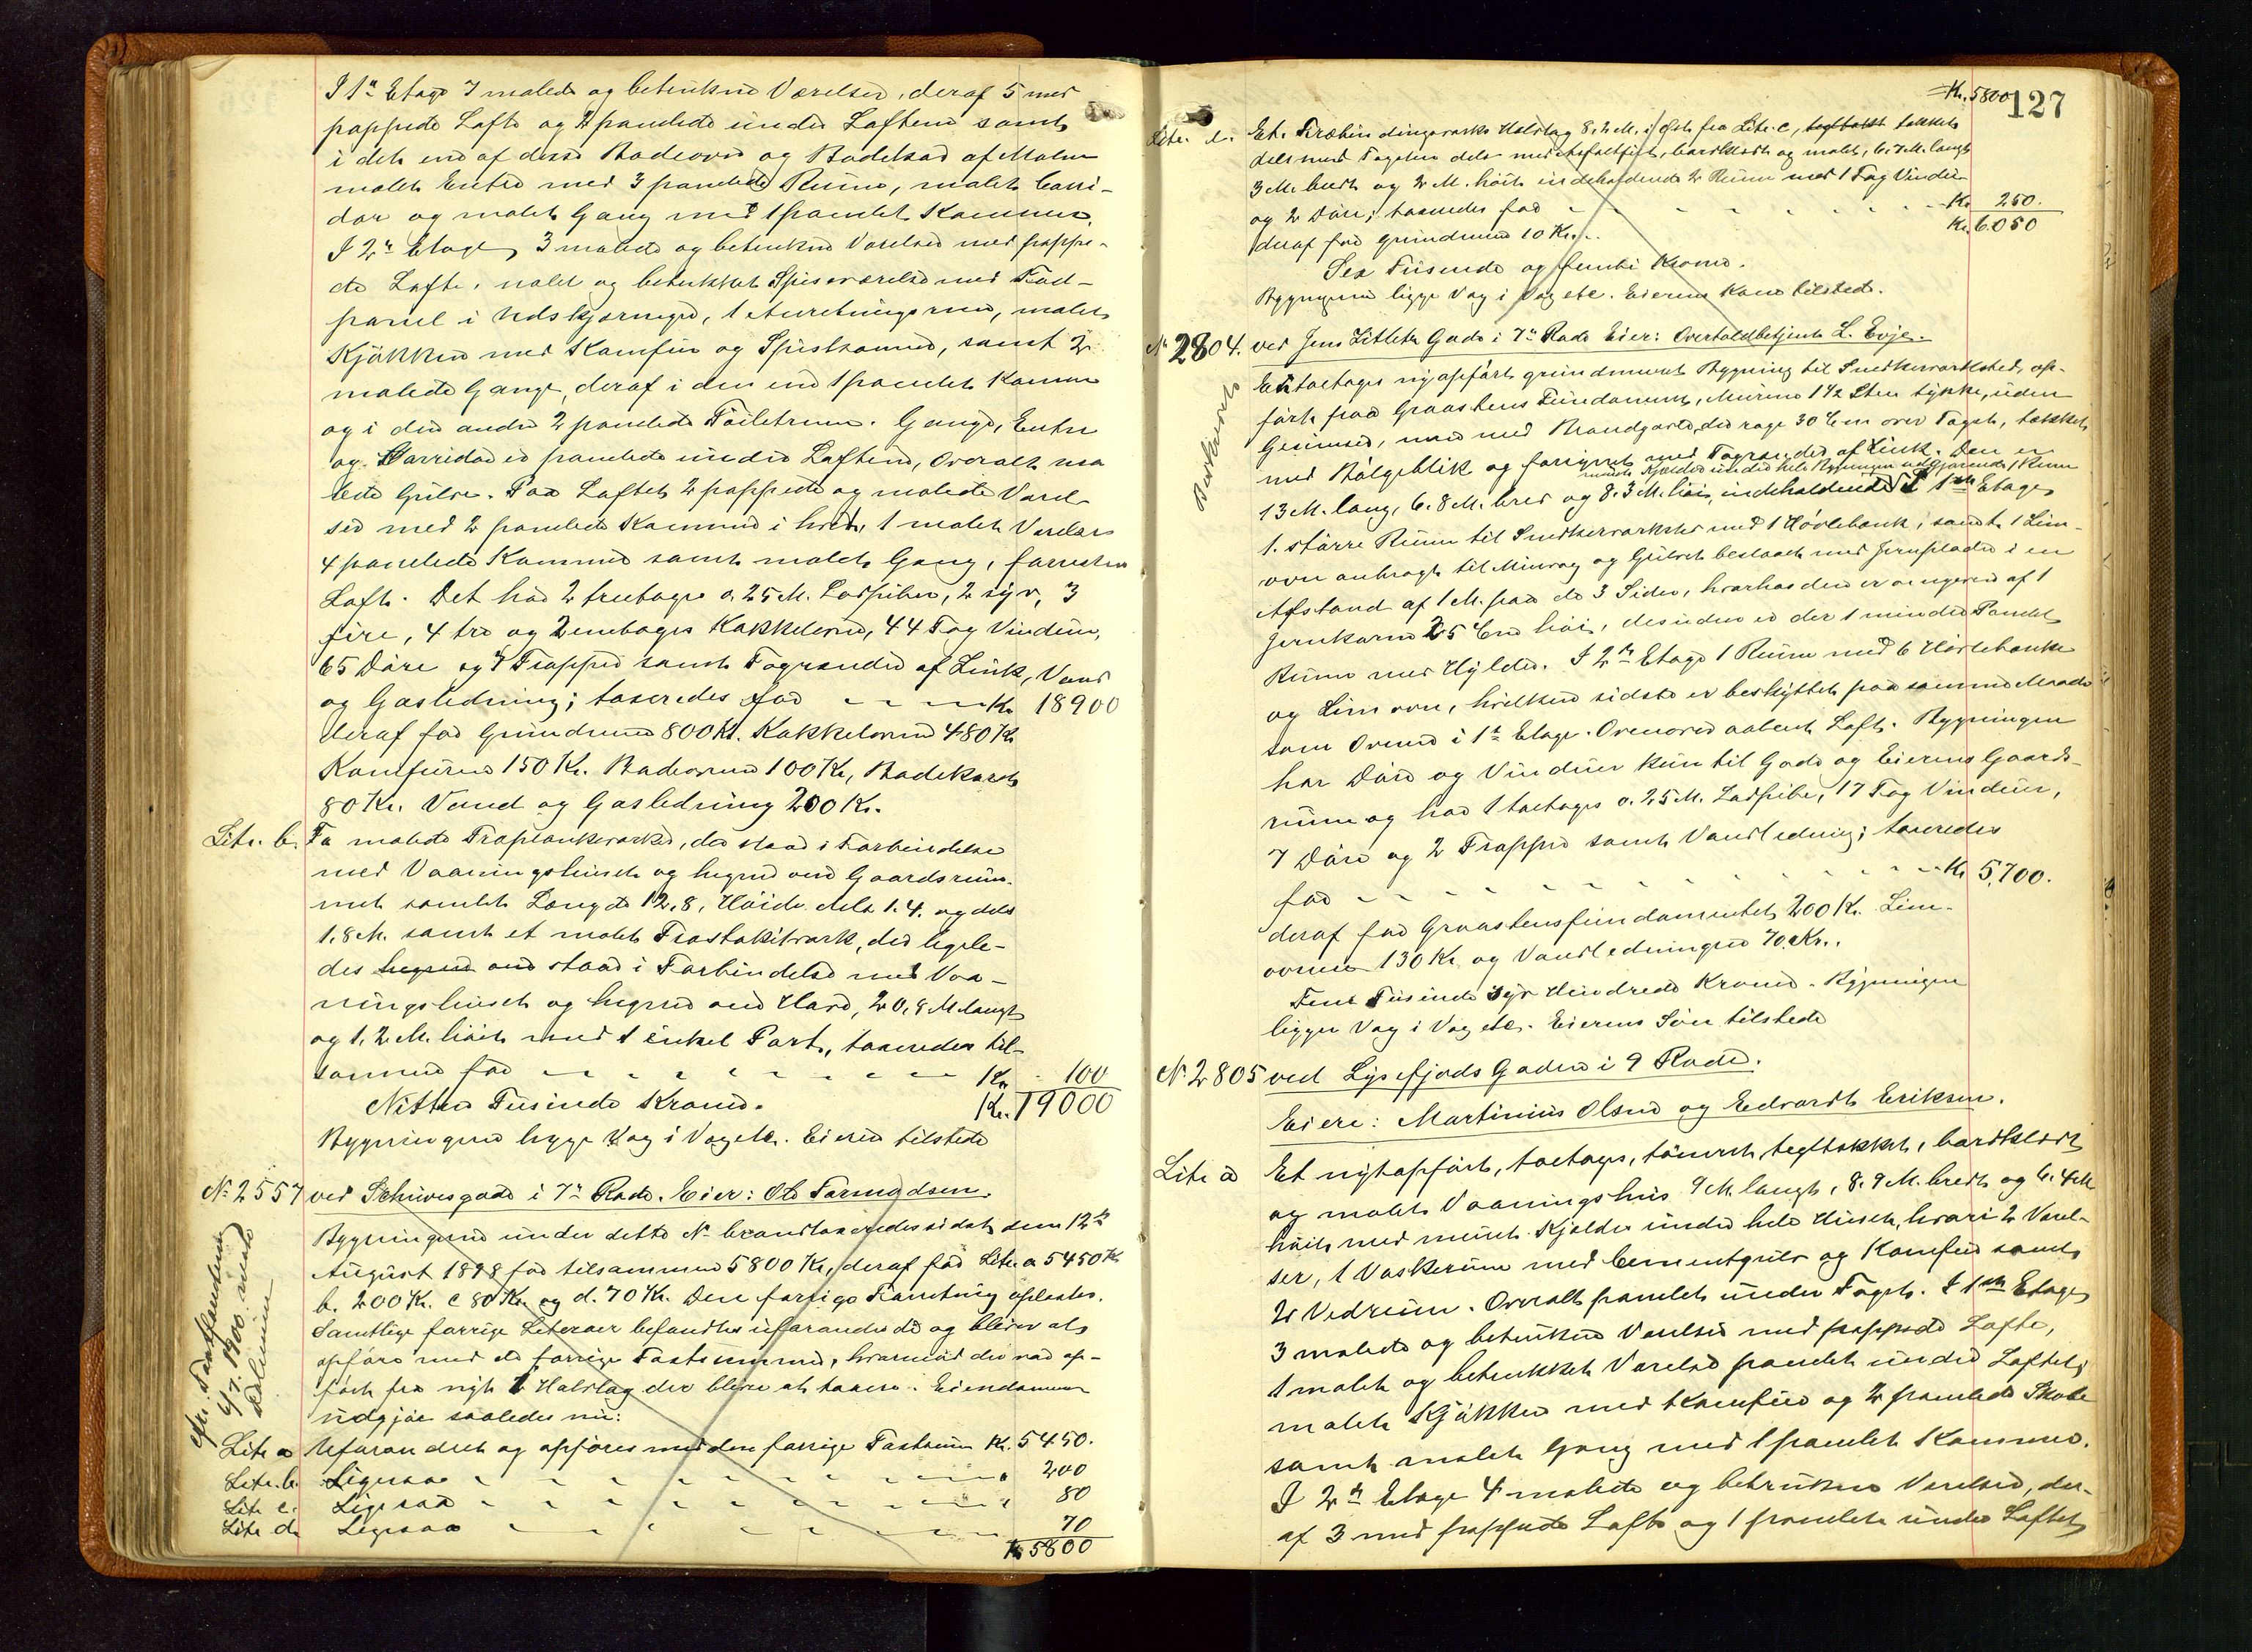 I 1ste Etage 7 malede og betrukne Værelser, deraf 5 med
pappede Lofte og 2 panelede under Loftene samt
i det ene af disse Badeovn og Badekar af Malm
malet Entre med 3 panelede Rum, malet Corri-
dor og malet Gang med 1 panelet Kammer.
I 2den Etage 3 malede og betrukne Værelser med pappe-
de Lofte, malet og betrukket Spiseværelse med Fod-
panel i Udskjæringer, 1 Anretningsrum, malet
Kjøkken med Komfur og Spiskammer, samt 2
malede Gange, deraf i den ene 1 panelet Kammer
og i den anden 2 panelede Toiletrum. Gange, Entre
og Corridor er panelede under Loftene, Overalt ma
lede Gulve. Paa Loftet 2 pappede og malede Værel-
ser med 2 panelede Kammer i hvert, 1 malet Værelse
4 panelede Kammer samt malet Gang, forresten
Loft. Det har 2 treetages o. 25 M. Lodpiber, 2 syv, 3
fire, 4 tre og 2 enetages Kakkelovne, 44 Fag Vinduer,
65 Døre og 4 Trapper samt Tagrender af Zink, Vand
og Gasledning; taxeredes for - - - Kr. 18900
deraf for Grundmur 800 Kr. Kakkelovne 480 Kr
Komfuren 150 Kr. Badeovnen 100 Kr, Badekaret
80 Kr. Vand og Gasledning 200 Kr.
Litr. b. To malede Træplankeværker, der staar i Forbindelse
med Vaaningshuset og hegner om Gaardsrum-
met samlet Længde 12,8, Høide dels 1.4. og dels
1,8 M. samt et malet Træstakitværk, der ligele-
des hegner om staar i Forbindelse med Vaa-
ningshuset og hegner om Have, 20,8 M langt
og 1,2 M. høit med 1 enkel Port, taxeredes til-
sammen for - - - - - - - Kr 100
Nitten Tusinde Kroner. Kr. 19000
Bygningerne ligge Væg i Væg etc. Eieren tilstede
No 2557 ved Schivesgade i 7de Rode. Eier: Ole Tormodsen.
Bygningerne under dette No brandtaxeredes sidst den 12te
August 1898 for tilsammen 5800 Kr, deraf for Litr. a 5450 Kr
b. 200 Kr. c 80 Kr. og d. 70 Kr. Den forrige Taxering oplæstes.
Samtlige forrige Literaer befandtes uforandrede og bliver at
opføre med de forrige Taxtsummer, hvorimod der var op-
ført fra nyt 1 Halvtag der bliver at taxere. Eiendommen
udgjør saaledes nu:
cfr. Taxtforretning
6/7. 1900.
Litr a Uforandret og opføres med den forrige Taxtsum Kr. 5450.
Litr. b. Ligesaa - - - - - - - " 200
Litr c. Ligesaa - - - - - - - " 80
Litr d. Ligesaa - - - - - - - 70
Kr 5800
Kr. 5800
127
Litr. e. Et Træbindingsværks Halvtag 8,2 M. i Øst fra Litr. c, teglt tækket
dels med Tagsten dels med Asfaltfilt, bordklædt og malet, 6,7 M. langt
3 M. bredt og 2 M. høit indeholdende 2 Rum med 1 Fag Vinduer
og 2 Døre; taxeredes for - - - - - - - Kr 250.
deraf for Grundmur 10 Kr. Kr. 6050
Sex Tusinde og femti Kroner.
Bygningerne ligge Væg i Væg etc. Eierens Kone tilstede.
No 2804. ved Jens Zetlitz Gade i 7de Rode Eier: Overtoldbetjent L. Evje.
En toetages nyopført grundmuret Bygning til Snedkerværksted, op-
ført paa Graastens Fundament, Murene 1 1/2 Sten tykke, uden
Gesimser, men med Brandgavle, der rage 30 Cm over Taget, tækket
med Bølgeblik og forsynet med Tagrender af Zink. Den er
muret Kjælder under hele Bygningen udgjørende 1 Rum
13 M. lang, 6.8 M. bred og 8.3 M. høi, indeholdende I 1ste Etage
1. større Rum til Snedkerværksted med 1 Høvlebænk, samt 1 Lim-
ovn anbragt til Murvæg og Gulvet beslaaet med Jernplader i en
Afstand af 1 M. fra de 3 Sider, hvorhos den er omgiven af 1
Jernkarm 25 Cm høi, desuden er der 1 mindre Panelet
Rum med Hylder. I 2den Etage 1 Rum med 6 Høvlebænke
og Limovn, hvilken sidste er beskyttet paa samme Maade
som Ovnen i 1ste Etage. Ovenover aabent Loft. Bygningen
har Døre og Vinduer kun til Gade og Eierens Gaards-
rum og har 1 toetages o. 25 M. Lodpibe, 17 Fag Vinduer,
7 Døre og 2 Trapper samt Vandledning; taxeredes
for - - - - - - - - - - Kr 5,700.
deraf for Graastensfundamentet 200 Kr. Lim-
ovnene 130 Kr og Vandledningen 70. Kr..
Fem Tusinde syv Hundrede Kroner. Bygningen
ligger Væg i Væg etc. Eierens Søn tilstede
No 2805 ved Lysefjords Gaden i 9 Rode.
Eiere: Martinius Olsen og Edvardt Eriksen.
Litr a Et nytopført, toetages, tømret, tegltækket, bordklædt
og malet Vaaningshus 9 M. langt, 8.9 M. bredt og 6.4 M
høit med muret Kjælder under hele Huset, hvori 2 Værel-
ser, 1 Vaskerum med Cementgulv og Komfur samt
2 Vedrum. Overalt panelet under Taget. I 1ste Etage
3 malede og betrukne Værelser med pappede Lofte,
1 malet og betrukket Værelse panelet under Loftet,
malet Kjøkken med Komfur og 2 panelede Skabe
samt malet Gang med 1 panelet Kammer.
I 2den Etage 4 malede og betrukne Værelser, der-
af 3 med pappede Lofte og 1 panelet under Loftet